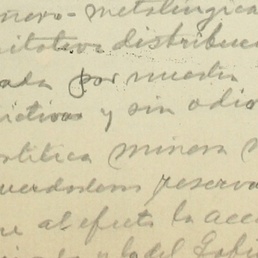 nero-metalúrgica
itativa distribuci
ada por nuestra
ictivas y sin odio
olítica minera
uerdodons reserva
ue al efecto la acc
y la del Gobi